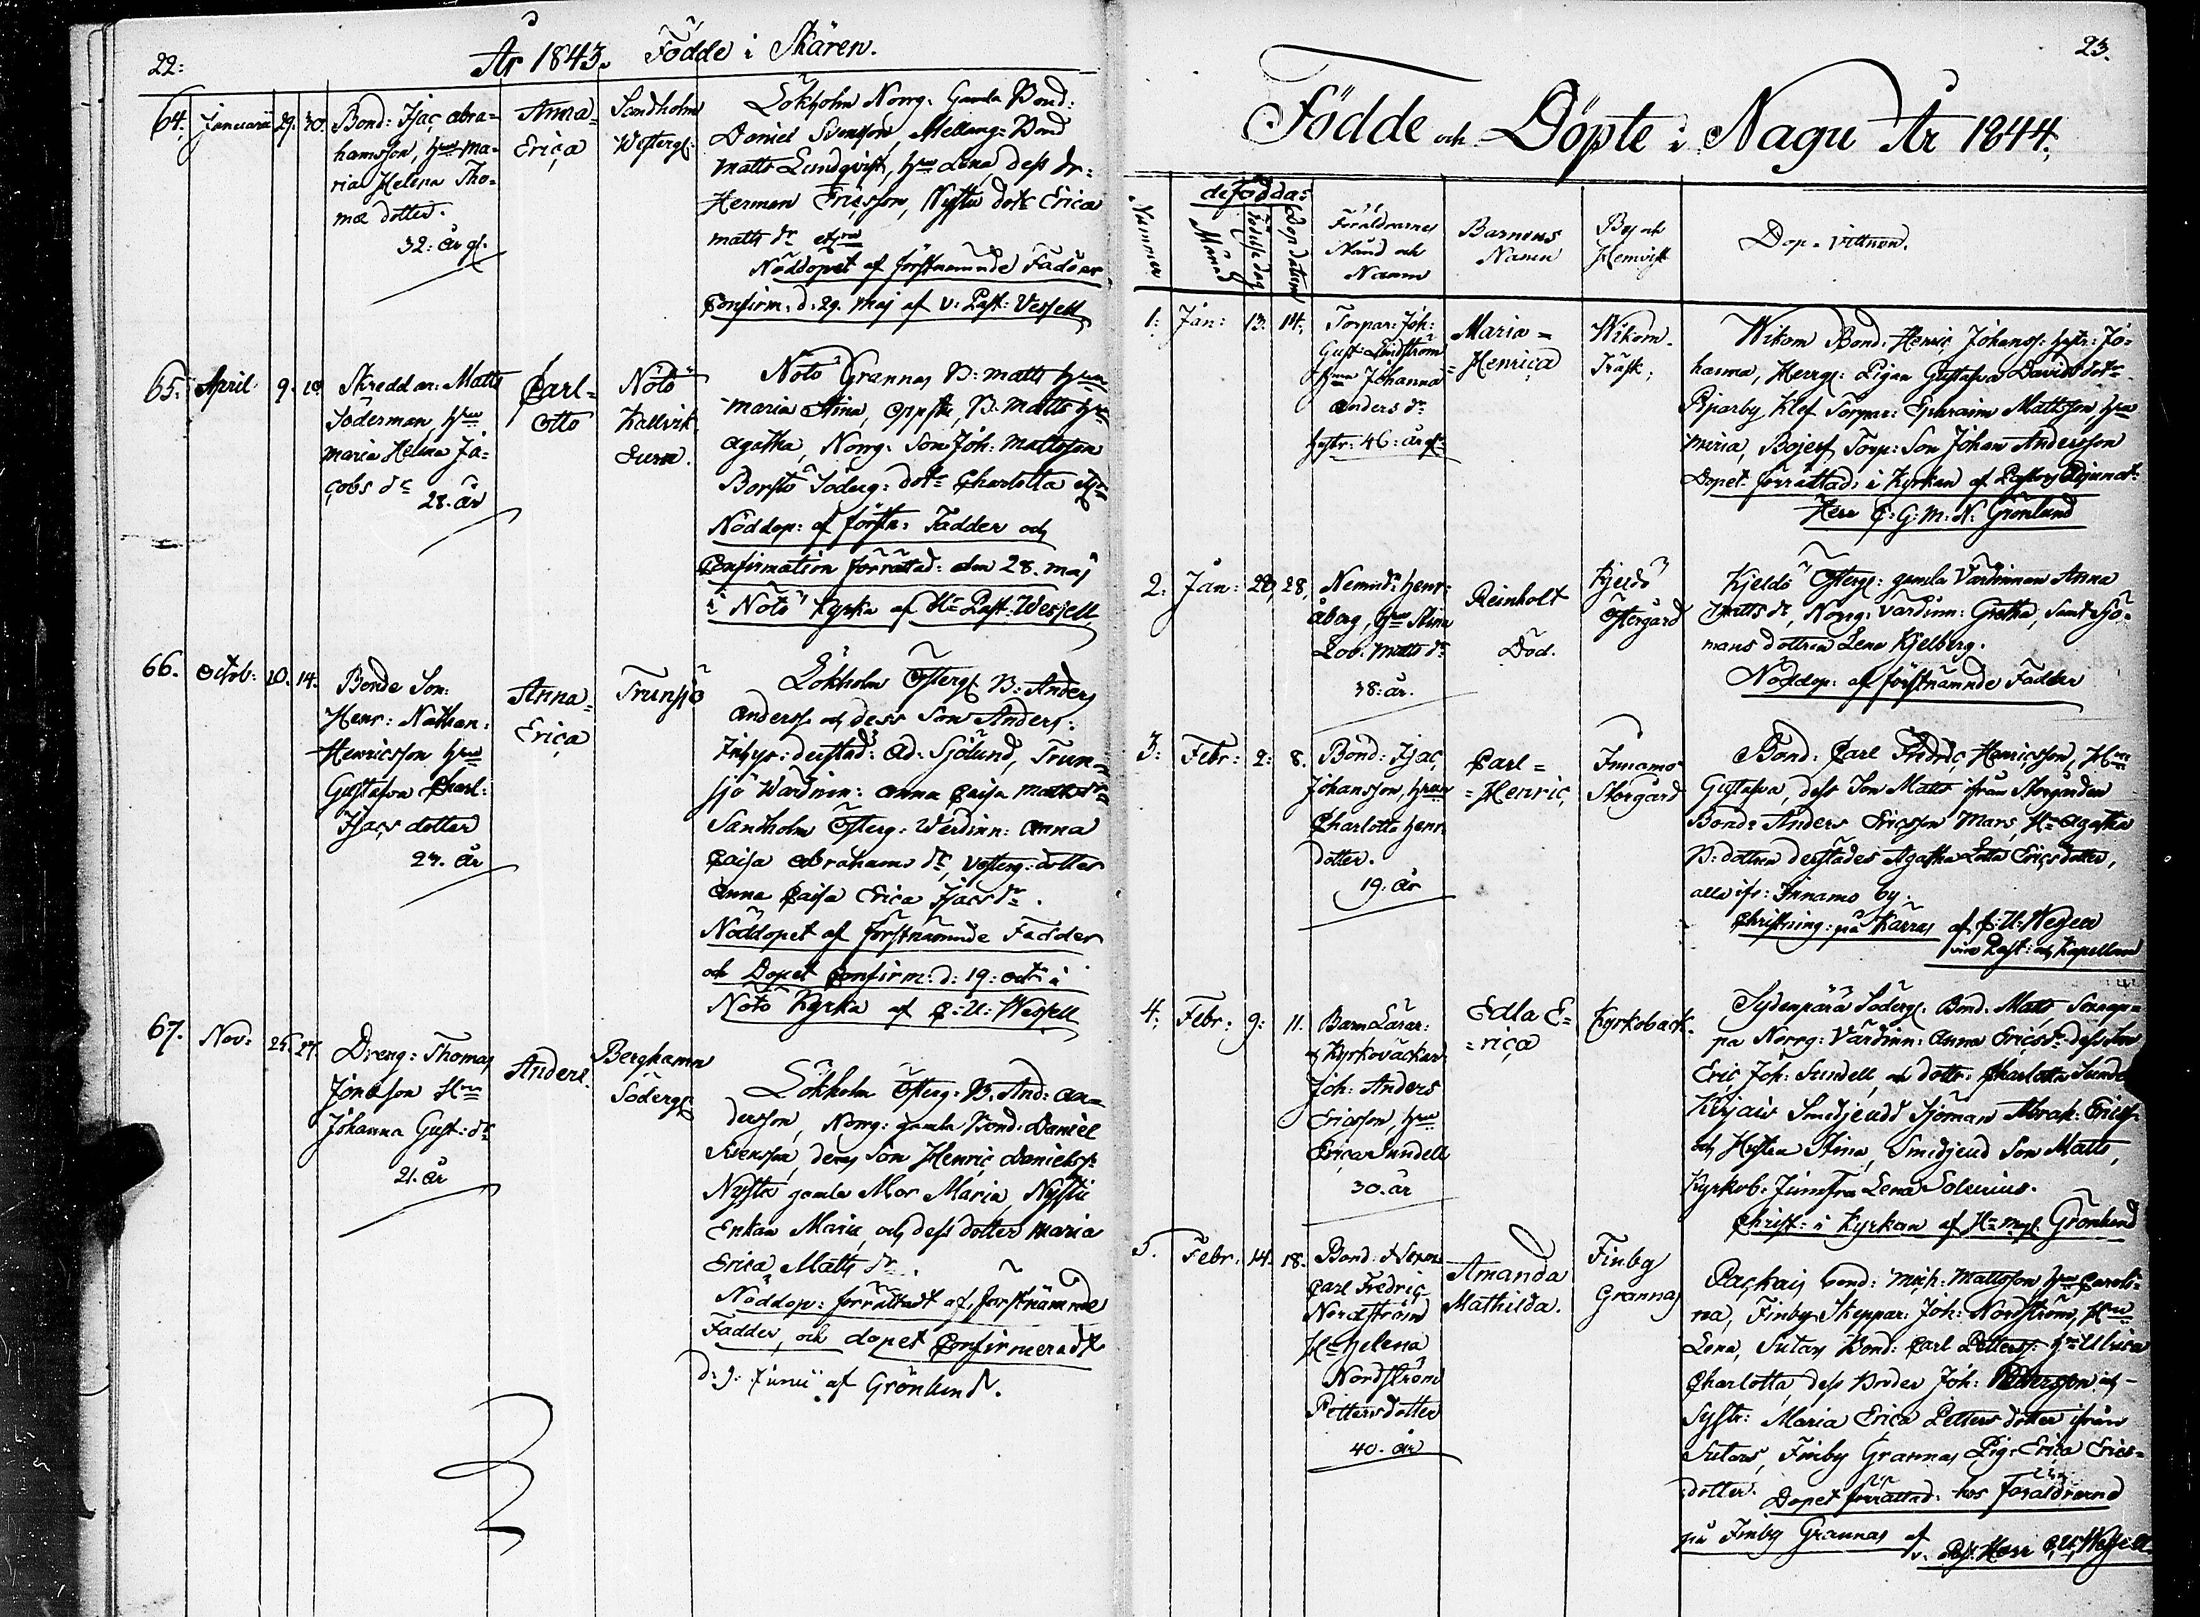 22:
År 1843. Födde i Skären.
64. Januarii 29. 30. Bond: Isac Abra=
hamsson, hru Ma=
ria Helena Tho=
mæ dotter.
32: år gl.
Anna=
Erica
Sandholm
Westergl:
Lökholm Norrg: Gamla Bond:
Daniel Svensson, Mellang: Bond
Matts Lundqvist, hru Lena, dess dr:
Herman Ericsson, Nystu dottr Erica
Matts dr
Nöddopet af förstnämnde Faddr
Confirm. d: 29. Maj af v: Past: Vessell
65. April. 9. 10. Skreddar: Matts
Söderman, hru
Maria Helena Ja=
cobs dr
28. år
Carl=
Otto
Nötö
Kallvik
Nötö Grannas B: Matts hru
Maria Stina, Oppstu, B: Matts hru
Agatha, Norrg: Son Joh: Mattsson
Borstö Söderg: dotr Charlotta
Nöddop: af förstn: Fadder och
Confirmation förrättad: den 28. Maj
i Nötö Kyrka af Hr Past: Wessell
66. Octob: 10. 14. Bonde Son:
Henr: Nathan:
Henricsson hru
Gustafva Charl:
Isacs dotter
27. år
Anna=
Erica
Trunsö
Lökholm Österg: B: Anders
Anderss och dess Son Anders:
Inhys: derstad: Ad: Sjölund, Trun=
sjö Wärdinn: Anna Caisa Matts dr
Sandholm Österg: Werdinn: Anna
Caisa Abrahams dr, Vesterg: dotter
Anna Caisa Erica Isacs dr.
Nöddopet af förstnämnde Fadder
och Dopet Confirm: d: 19: Octr i
Nötö Kyrka af C: U: Wessell
67. Nov: 25. 27. Dreng: Thomas
Jonsson Hru
Johanna Gust: dr
21. år
Anders.
Berghamn
Södergl
Lökholm Österg: B: And: An=
dersson, Norrg: gamla Bond: Daniel
Svensson, dess Son Henric Danielss:
Nystu gamla Mor Maria, Nystu
Enkan Maria, och dess dotter Maria
Erica Matts dr.
Nöddop: förrättadt af förstnämnde
Fadder, och dopet Confirmeradt
d: 9: Junii af Grönlund.
23.
Födde och Döpte i Nagu År 1844.
Nummer
de föddas
Månad
Födelse dag
Dop datum
Föräldrarnes
Stånd och
Namn
Barnens
Namn
By och
Hemvist
Dop-vittnen.
1: Jan: 13: 14. Torpar: Joh:
Gust: Lindström
hru Johanna
Anders dr
hustr: 46: år gl:
Maria=
=Henrica
Wikom.
Träsk.
Wikom Bond: Henric Johanss: hstr: Jo=
hanna, Herrg: Pigan Gustafva Davidsdotr
Piparby, Klef Torpar: Ephraim Mattsson hru
Maria, Torp: Son Johan Andersson
Dopet förrättad: i Kyrkan af Pastors Adjunct:
Herr C: G: M: N: Grönlund
2. Jan: 28. Henr:
Åberg, hru Stina
Lov: Matts dr
38: år.
Reinholt
Död.
Kjeldö
Östergård
Kjeldö Österg: gamla Värdinnan Anna
Matts dr, Norrg: Värdinn: Gretha, samt Sjö=
mans dottren Lena Kjelberg.
Nöddop: af förstnämnde Fadder
3. Febr: 2: 8. Bond: Isac
Johansson, hrun
Charlotta Henr:
dotter.
19: år
Carl=
=Henric
Innamo
Storgård
Bond: Carl Fredric Henricsson, Hru
Gustafva, dess Son Matts ifrån Storgården
Bond: Anders Ericsson Mars, Hr Agatha
B: dottren derstädes Agatha Lotta Ericsdotter,
alla ifr: Innamo by.
Christning: på Kärras af C: U: Wessell
vice Past: och Kapellan
4. Febr: 9: 11. Barn Lärar:
& Kyrkoväckar:
Joh: Anders
Ericsson, hru
Erica Sundell
30. år
Edla E=
=rica
Kyrkoback.
Sydenpärä Söderg: Bond. Matts
pa Norrg: Värdinn: Anna Ericsdr dess Son
Eric Joh: Sundell, och dottr: Charlotta Sunde
Kirjais Smedjeudd Sjöman Abrah: Ericss:
och Hustru Stina, Smedjeudd Son Matts,
Kyrkob: Jumfru Lena
Christ: i Kyrkan af Hr Mag. Grönlund
5. Febr: 14. 18. Bond:
Carl Fredric
Nordström
Hr Helena
Nordström
Pettersdotter
40. år
Amanda
Mathilda.
Finby
Grannas
Packais Bond: Mich: Mattsson hru Caroli=
na, Finby Skeppar: Joh: Nordström, Hru
Lena, Sutars Bond: Carl Petterss: hru Ulrica
Charlotta, dess Broder Joh: Pettersson och
Systr: Maria Erica Petters dotter ifrån
Sutars, Finby Grannas Pig: Erica Erics=
dotter. Dopet förrättad: hos föräldrarne
på Finby Grannas af
v. Past. Herr C. U. Wessell